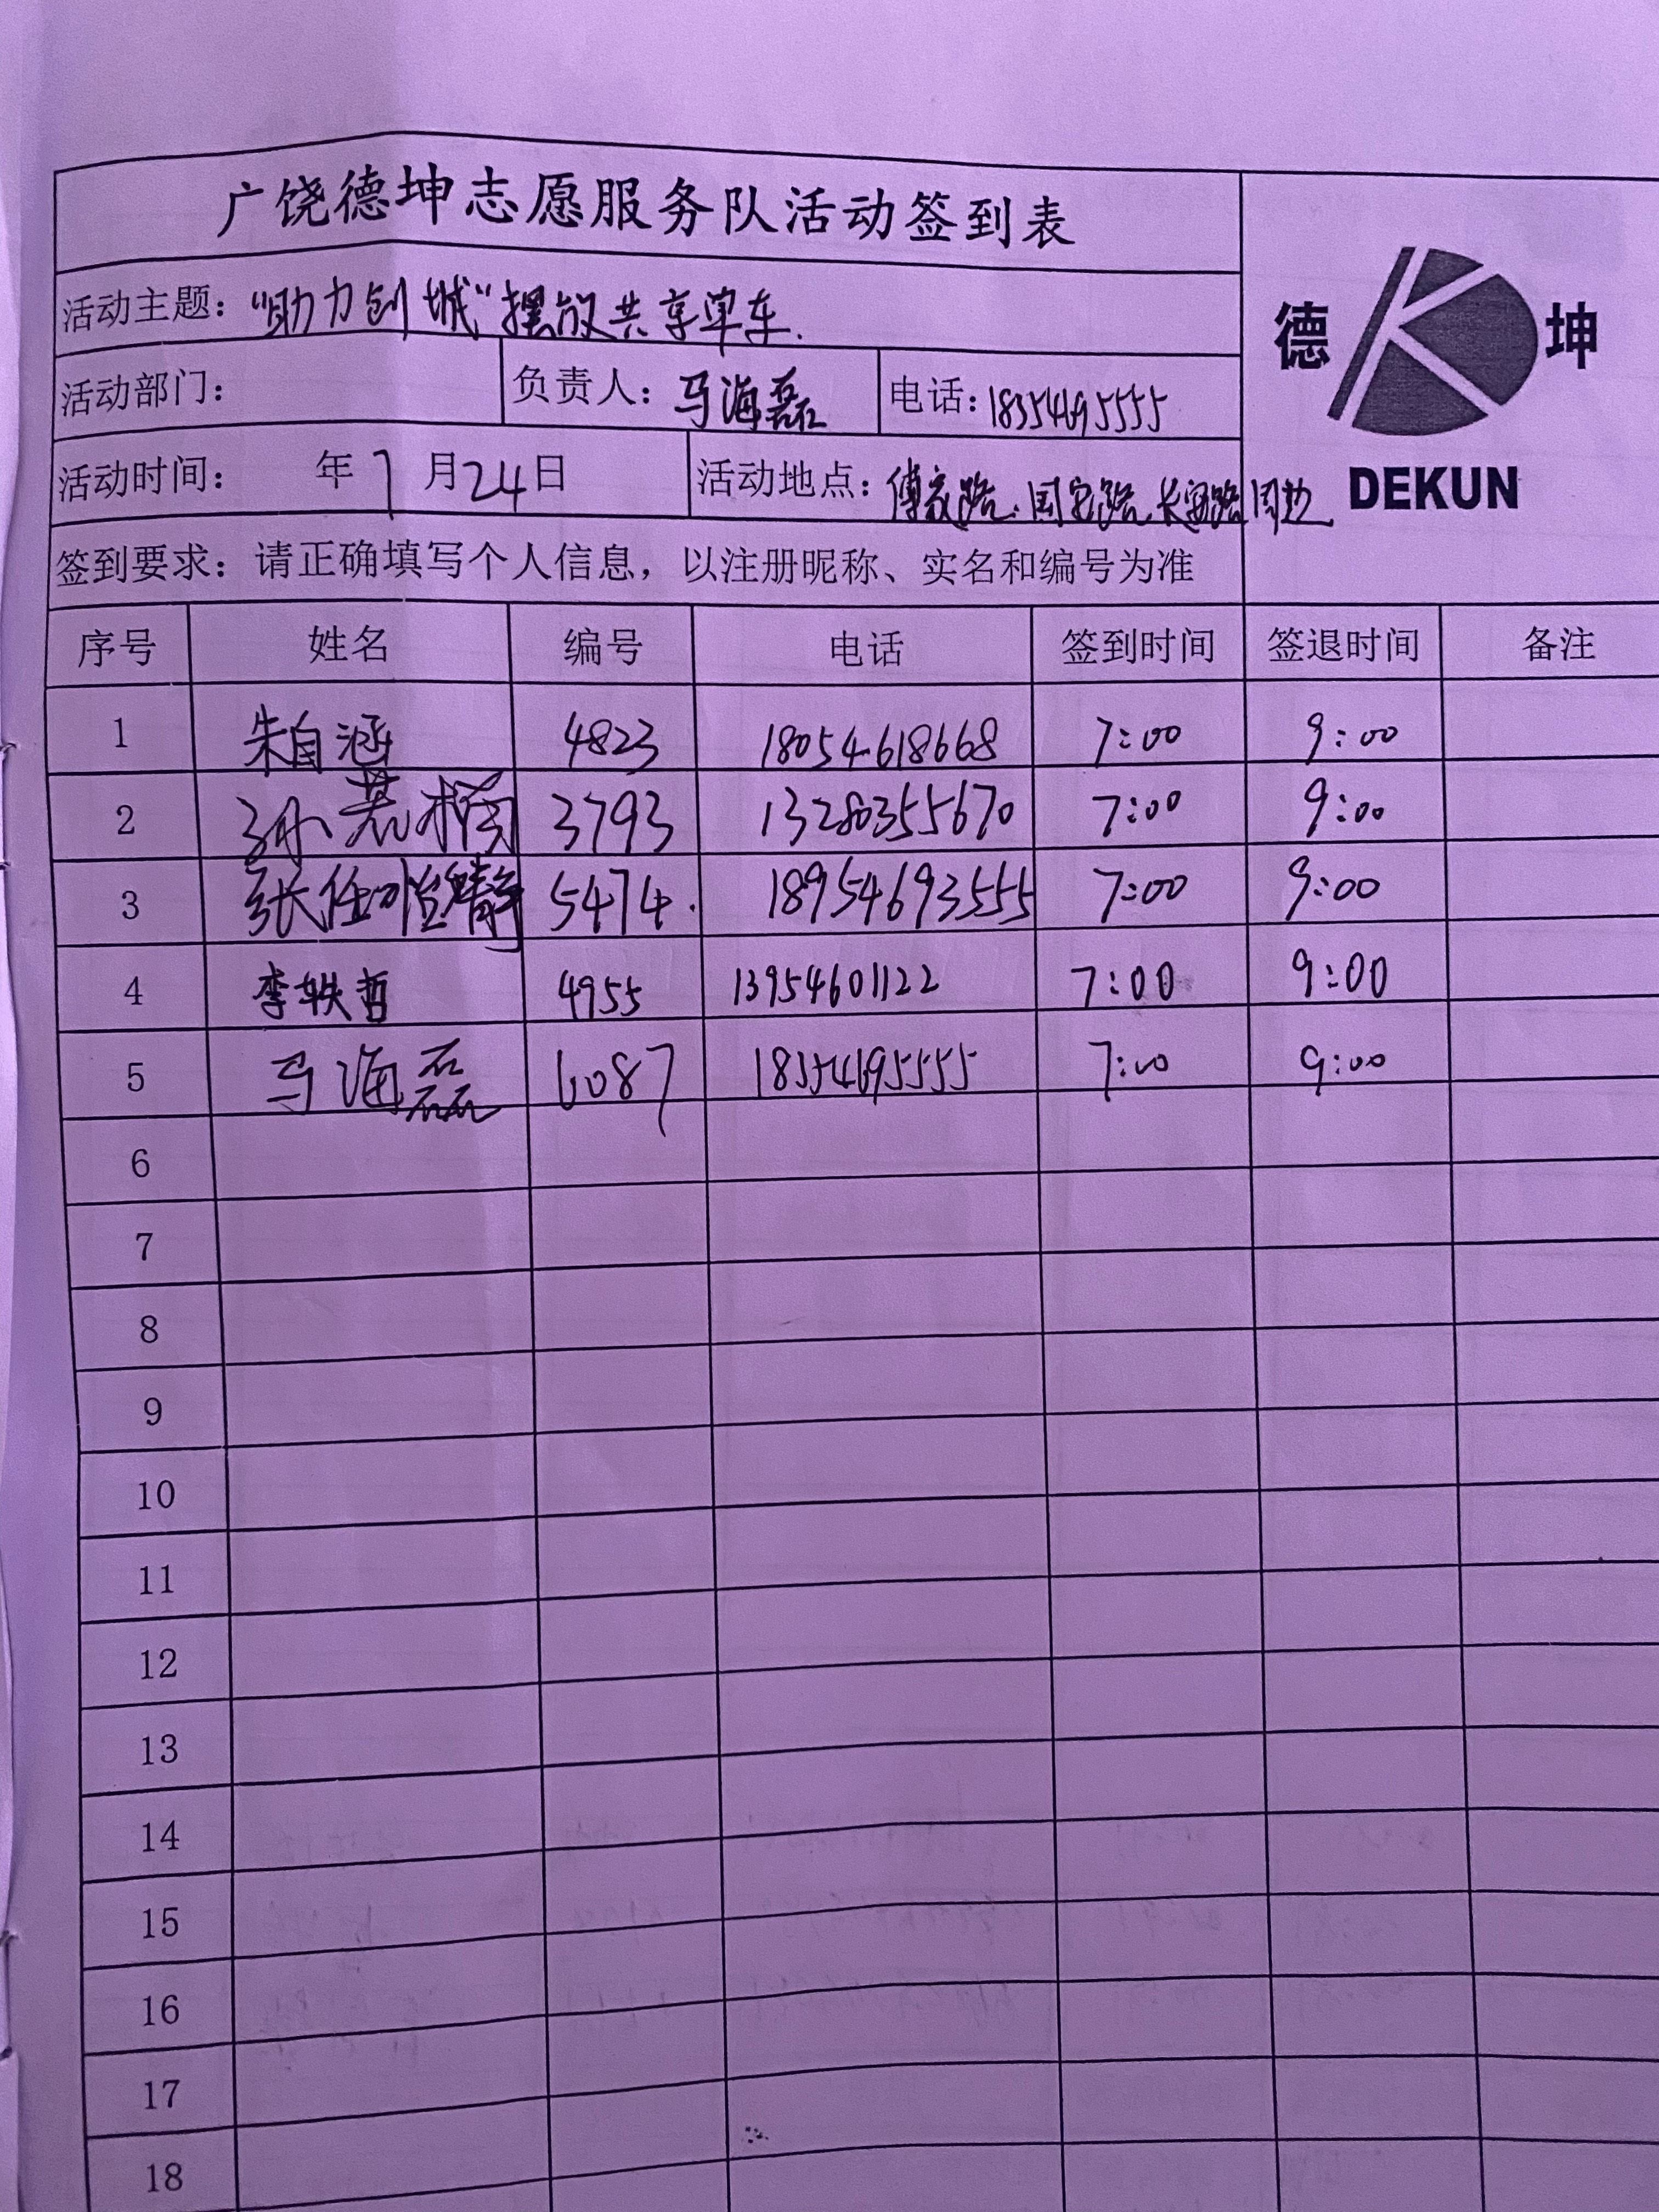 广饶德坤志愿服务队活动签到表
活动主题：“助力创城”摆放共享单车.
德 坤
活动部门： 负责人：马海磊 电话：18354695555
活动时间： 年7月24日 活动地点：傅家路.国安路 周边
DEKUN
签到要求：请正确填写个人信息，以注册昵称、实名和编号为准
序号 姓名 编号 电话 签到时间 签退时间 备注
1 朱自涵 4823 18054618668 7:00 9:00
2 孙 3793 13280355670 7:00 9:00
3 张任 5474. 18954693555 7:00 9:00
4 李轶哲 4955 13954601122 7:00 9:00
5 马海磊 6087 18354695555 7:00 9:00
6
7
8
9
10
11
12
13
14
15
16
17
18